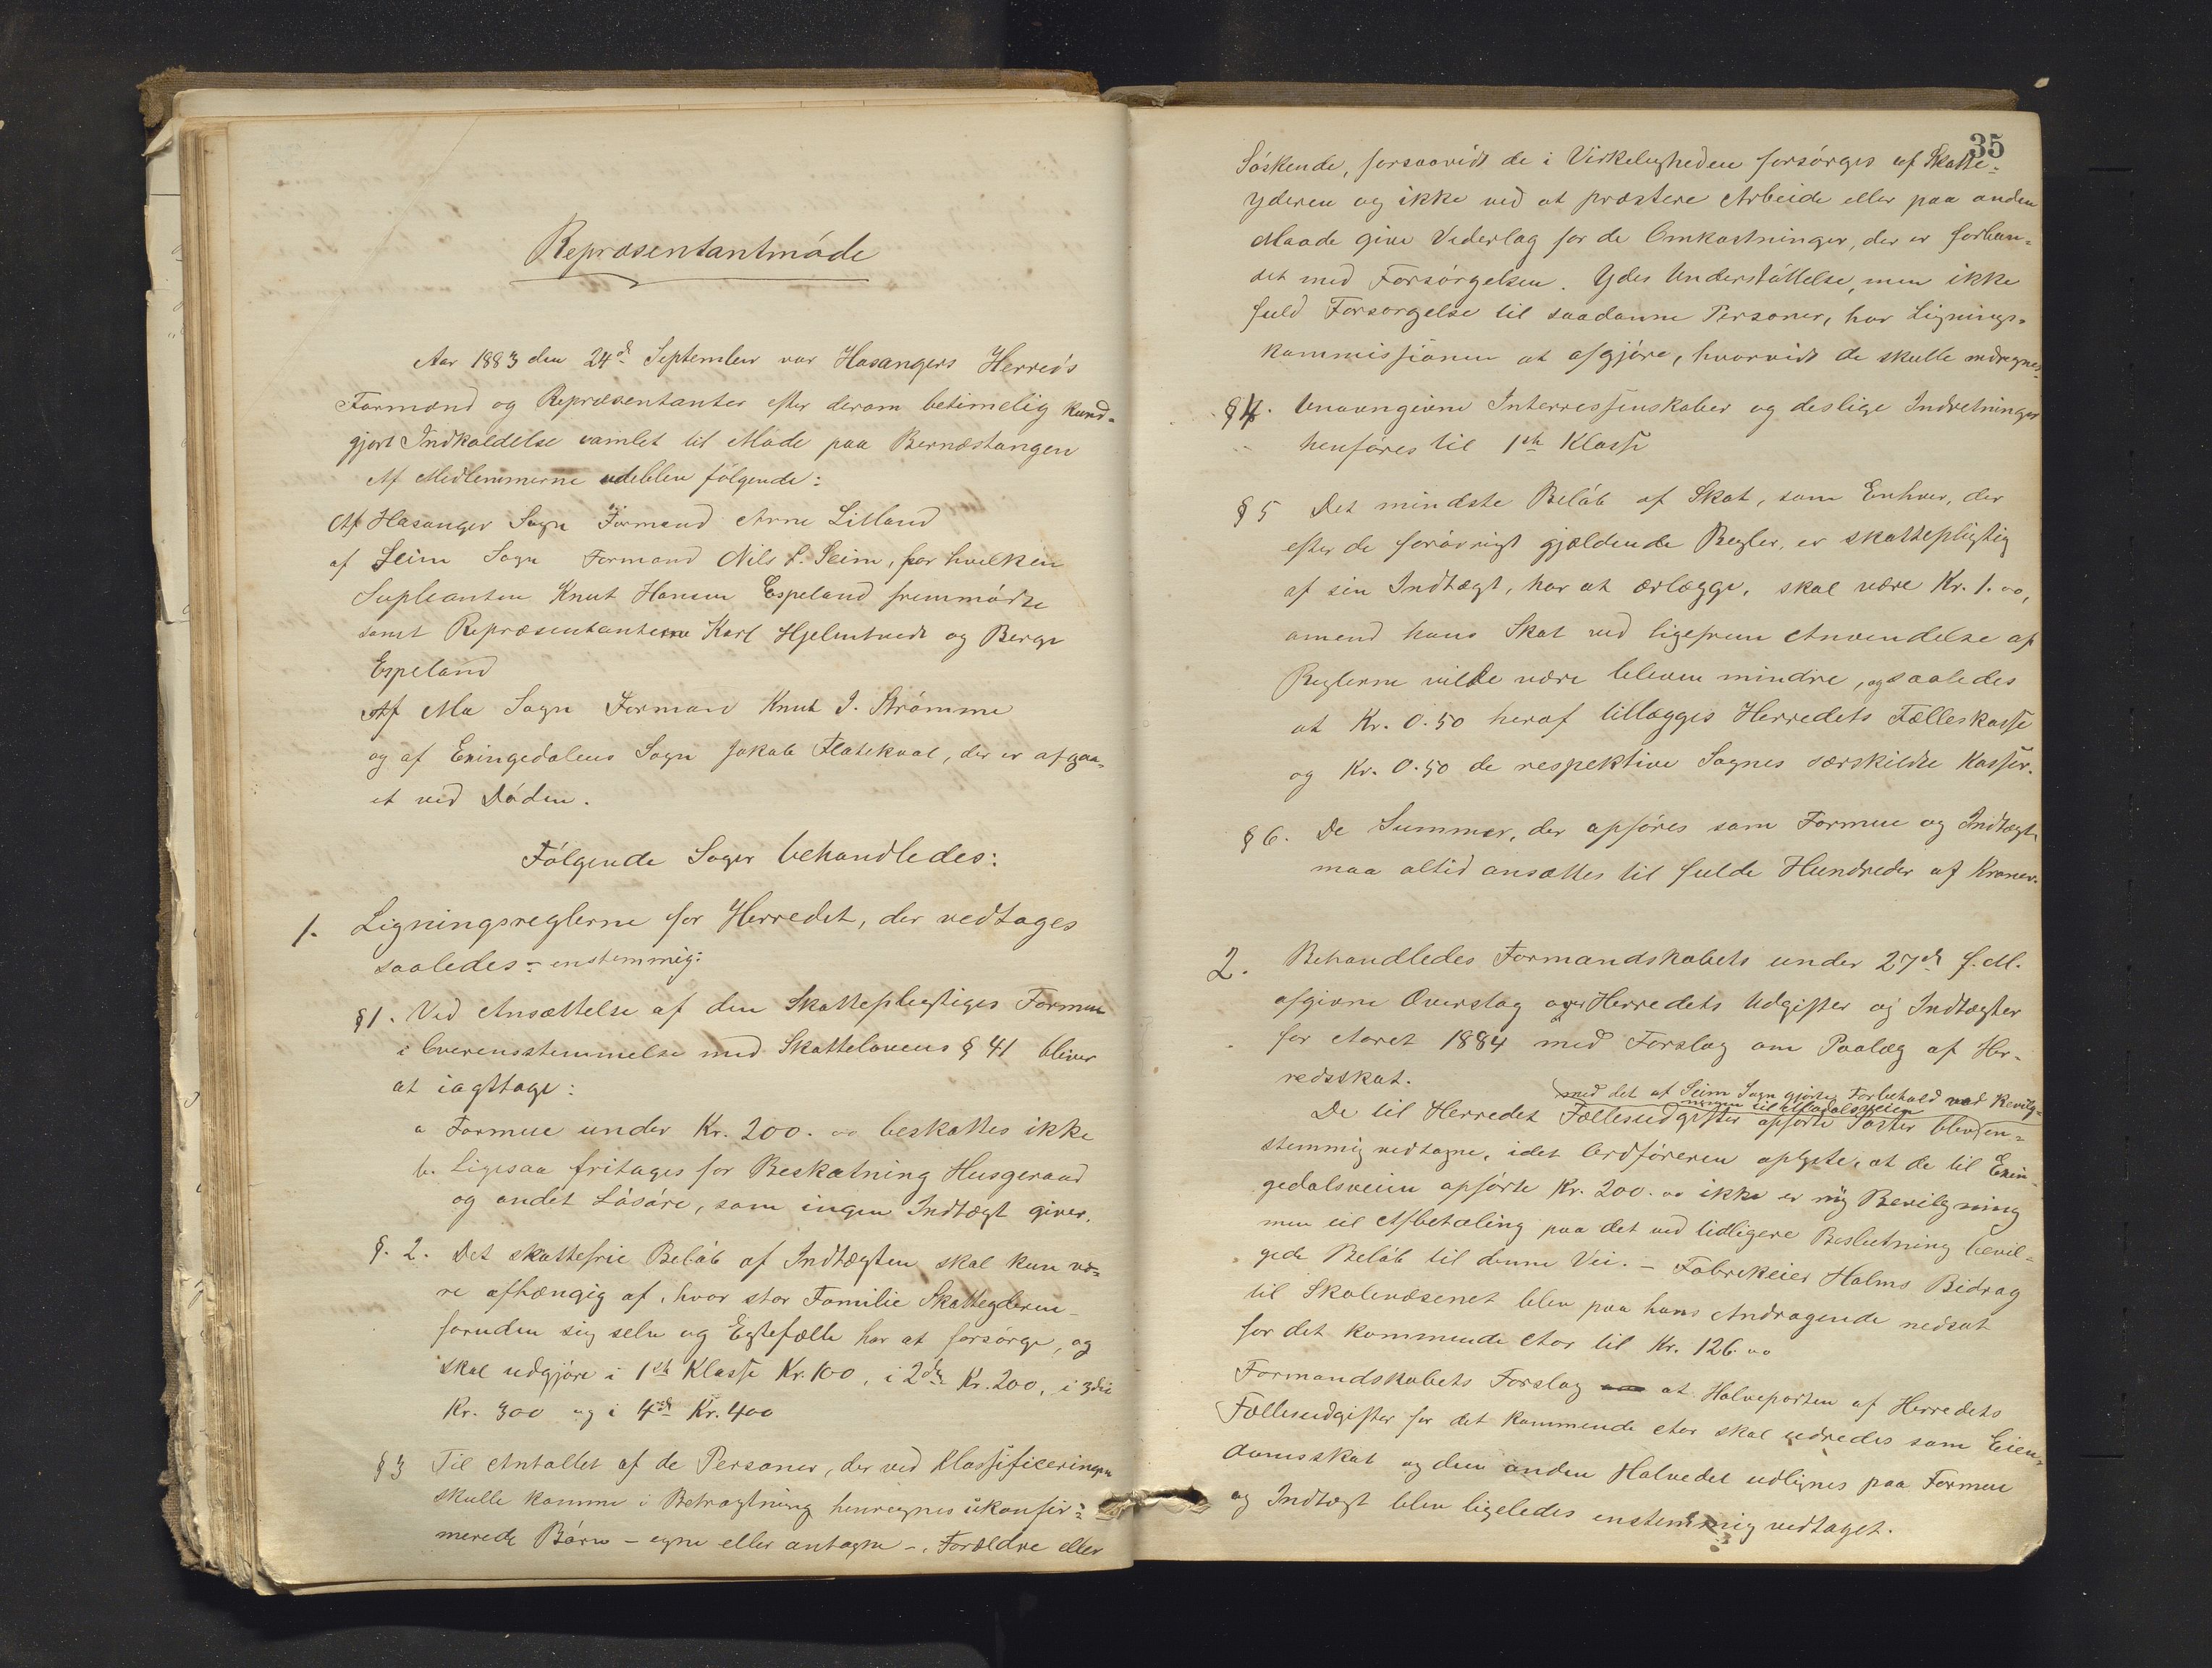 Repræsentantmøde
Aar 1883 den 24de September var Hosangers Herreds
Formænd og Repræsentanter efter derom betimelig kund-
gjort Indkaldelse samlet til Møde paa Bernæstangen
Af Medlemmerne udeblev følgende:
Af Hosanger Sogn Formand Arne Litland
af Seim Sogn Formand Nils S. Seim, for hvilken
Supleanten Knut Hansen Espeland fremmødte
samt Repræsentanterne Karl Hjelmtvedt og Berge
Espeland
Af Mo Sogn Formand Knut J. Strømme
og af Exingedalens Sogn Jakob Flatekval, der er afgaa-
et ved Døden.
Følgende Sager behandledes:
1. Ligningsreglerne for Herredet, der vedtages
saaledes - enstemmig:
§1. Ved Ansættelse af den Skattepligtiges Formue
i Overensstemmelse med Skattelovens § 41 bliver
at iagttage:
a Formue under Kr. 200.00 beskattes ikke
b. Ligesaa fritages for Beskatning Husgeraad
og andet Løsøre, som ingen Indtægt giver.
§. 2. Det skattefrie Beløb af Indtægten skal kun væ-
re afhængig af, hvor stor Familie Skatteyderen
foruden sig selv og Egtefælle har at forsørge, og
skal udgjøre i 1ste Klasse Kr. 100, i 2den Kr. 200, i 3die
Kr. 300 og i 4de Kr. 400
§ 3 Til Antallet af de Personer, der ved Klassificeringen
skulle komme i Betragtning henregnes ukonfir-
merede Børn - egne eller antagne -, Forældre eller
35
Søskende, forsaavidt de i Virkeligheden forsørges af Skatte-
yderen og ikke ved at præstere Arbeide eller paa anden
Maade give Vederlag for de Omkostninger, der er forbun-
det med Forsørgelsen. Ydes Understøttelse, men ikke
fuld Forsørgelse til saadanne Personer, har Lignings-
kommissionen at afgjøre, hvorvidt de skulle medregnes.
§ 4. Unavngivne Interressenskaber og deslige Indretninger
henføres til 1ste Klasse
§ 5 Det mindste Beløb af Skat, som Enhver, der
efter de forøvrigt gjældende Regler, er skattepligtig
af sin Indtægt, har at erlægge, skal være Kr. 1.00,
omend hans Skat ved ligefrem Anvendelse af
Reglerne vilde være bleven mindre, og saaledes
at Kr. 0.50 heraf tillægges Herredets Fælleskasse
og Kr. 0.50 de respektive Sognes særskildte Kasser.
§ 6. De Summer, der opføres som Formue og Indtægt
maa altid ansættes til fulde Hundreder af Kroner.
2. Behandledes Formandskabets under 27de f. M.
afgivne Overslag over Herredets Udgifter og Indtægter
for Aaret 1884 med Forslag om Paalæg af Her-
redsskat.
med det af Seim Sogn gjorte Forbehold ved Bevilg-
ningen til
De til Herredet Fællesudgifter opførte Poster blev en-
stemmig vedtagne, idet Ordføreren oplyste, at de til Exin-
gedalsveien opførte Kr. 200.00 ikke er ny Bevilgning
men til Afbetaling paa det ved tidligere Beslutning bevil-
gede Beløb til denne Vei. - Fabrikeier Holms Bidrag
til Skolevæsenet blev paa hans Andragende nedsat
for det kommende Aar til Kr. 126.00
Formandskabets Forslag at Halveparten af Herredets
Fællesudgifter for det kommende Aar skal udredes som Eien-
domsskat og den anden Halvedel udlignes paa Formue
og Indtægt blev ligeledes enstemmig vedtaget.